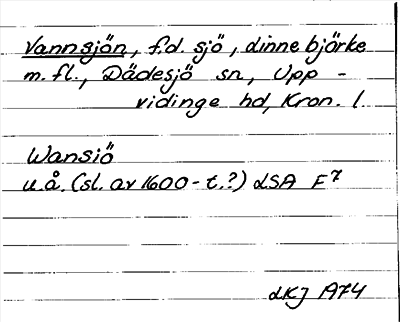 Vannsjön, f.d. sjö, Linnebjörke
m.fl., Dädesjö sn, Upp-
vidinge hd, Kron. l.
Wansiö
u.å. (sl. av 1600-t.?) LSA F7
LKJ 1974